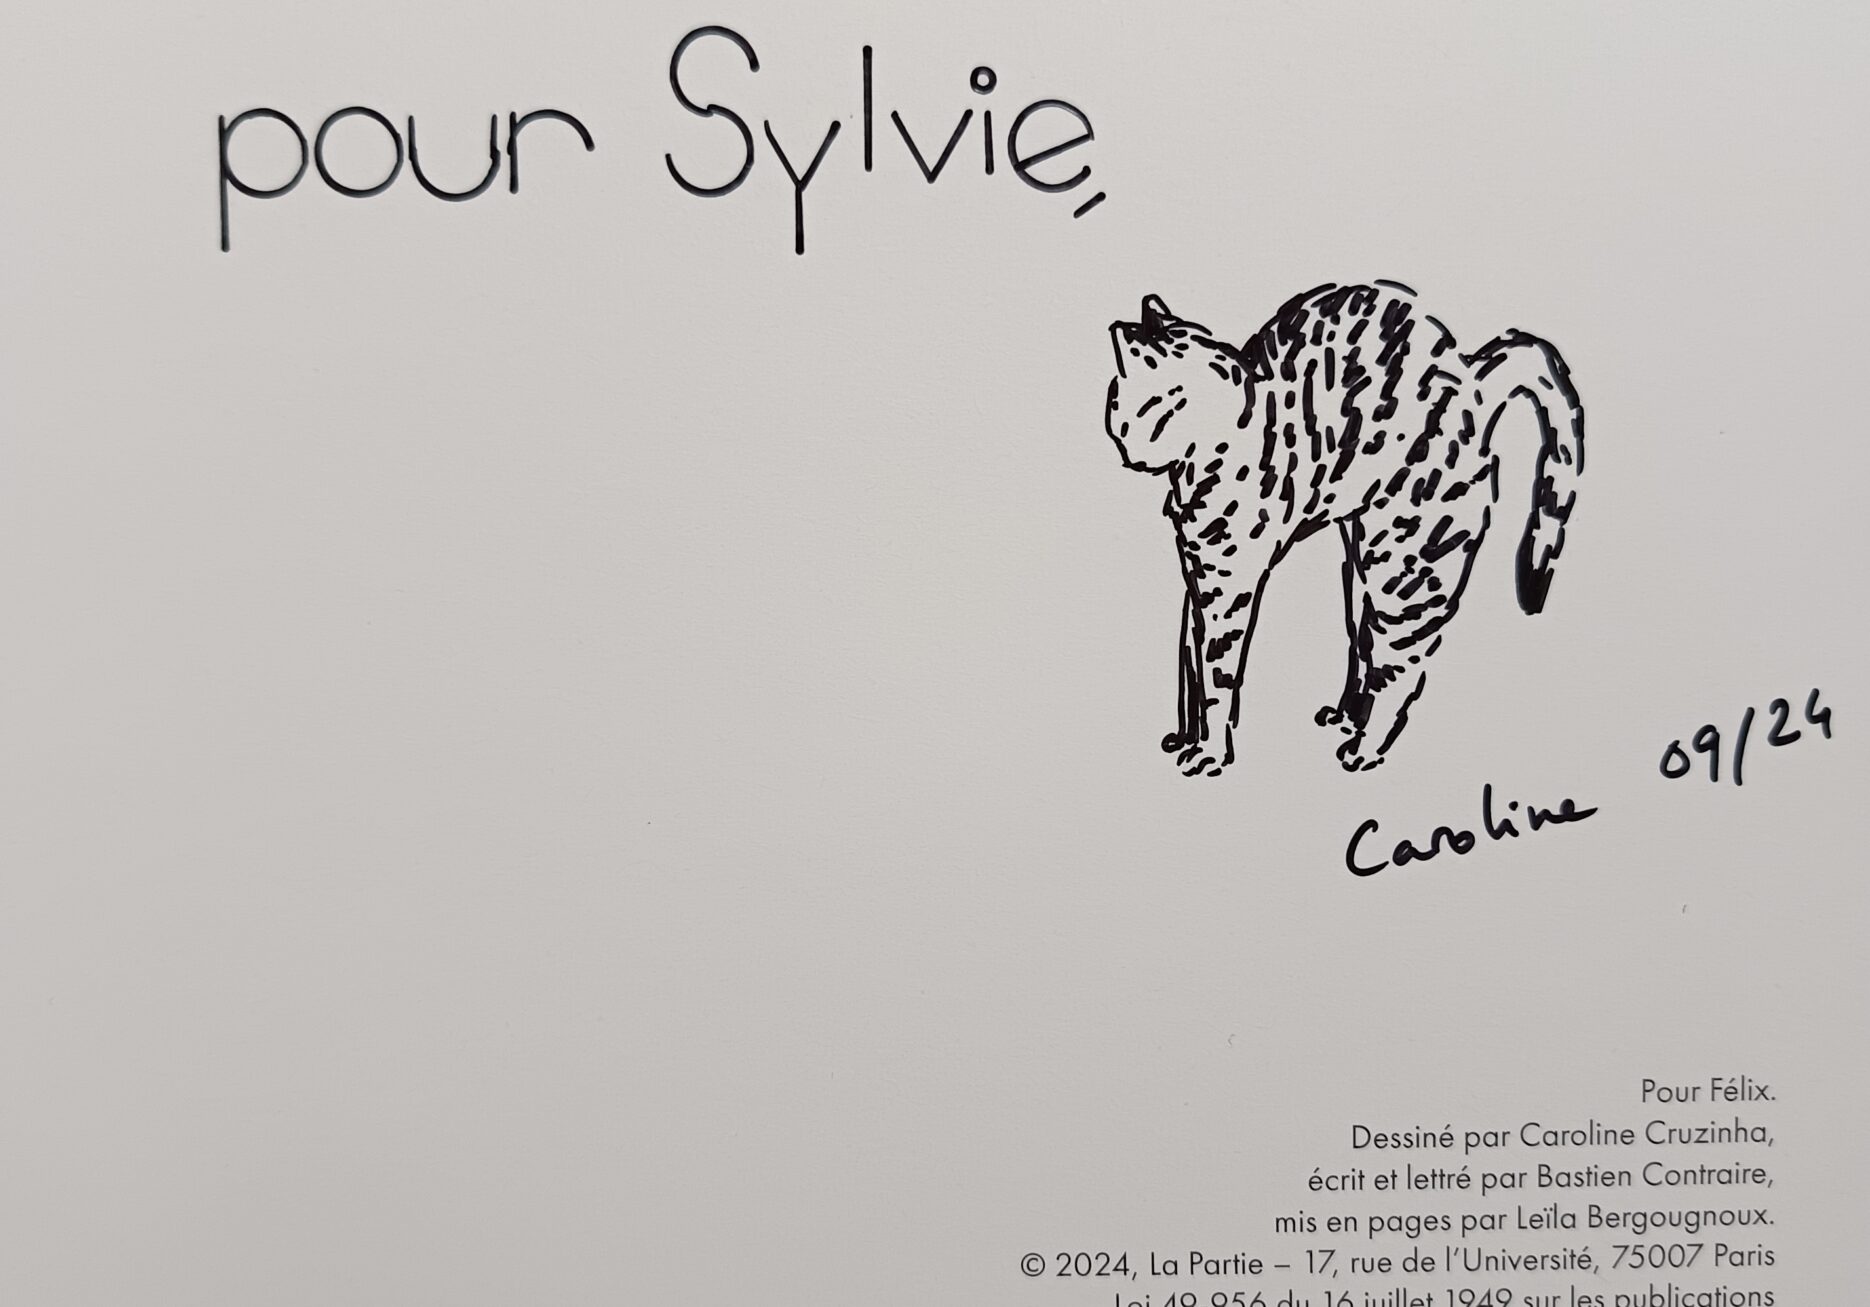 pour Sylvie,
09/24
Caroline
Pour Félix.
Dessiné par Caroline Cruzinha,
écrit et lettré par Bastien Contraire,
mis en pages par Leïla Bergougnoux.
© 2024, La Partie – 17, rue de l'Université, 75007 Paris
Loi 49-956 du 16 juillet 1949 sur les publications